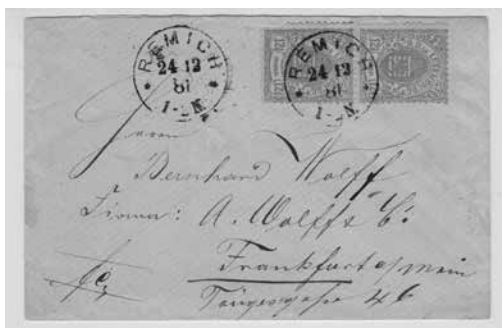 REMICH
24 12
81
1-2N.
REMICH
24 12
81
Herrn
Bernhard Wolff
Firma: A. Wolff & Co:
Frankfurt a/Main
46